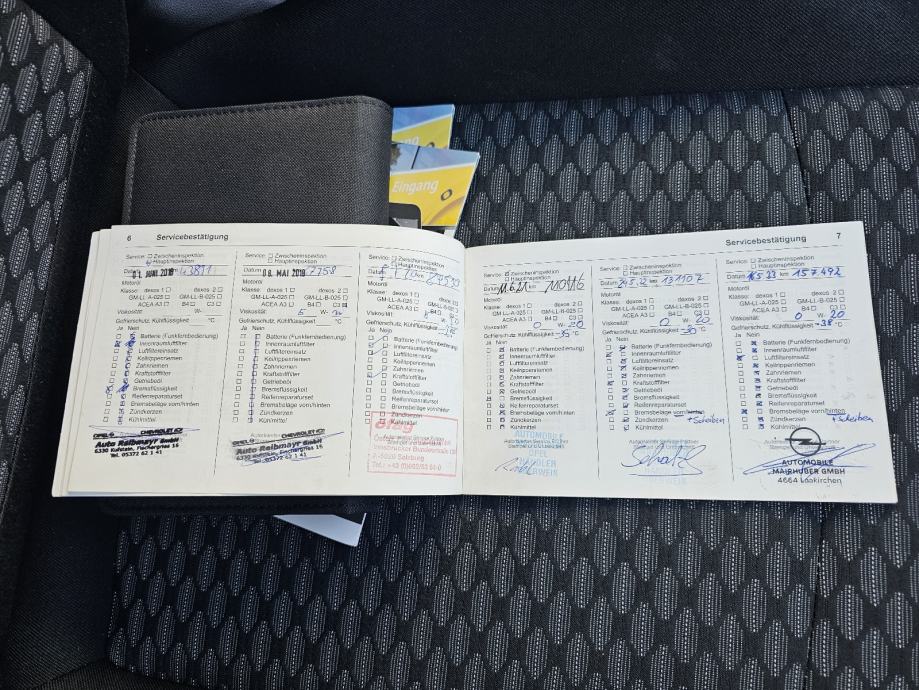 Eingang
6 Servicebestätigung
Service: Zwischeninspektion
Hauptinspektion
Datum 01. JUNI 2018
Motoröl
Klasse: dexos 1 dexos 2
GM-LL-A-025 GM-LL-B-025
ACEA A3 B4 C3
Viskosität W-
Gefrierschutz, Kühlflüssigkeit °C
Ja Nein
Batterie (Funkfernbedienung)
Innenraumluftfilter
Luftfiltereinsatz
Keilrippenriemen
Zahnriemen
Kraftstofffilter
Getriebeöl
Bremsflüssigkeit
Reifenreparaturset
Bremsbeläge vorn/hinten
Zündkerzen
Kühlmittel
OPEL CHEVROLET
Auto Reibmayr GmbH
6330 Kufstein, Fischergries 15
Tel. 05372 62 1 41
Service: Zwischeninspektion
Hauptinspektion
Datum 08. MAI 2019
Motoröl
Klasse: dexos 1 dexos 2
GM-LL-A-025 GM-LL-B-025
ACEA A3 B4 C3
Viskosität 5 W-
Gefrierschutz, Kühlflüssigkeit °C
Ja Nein
Batterie (Funkfernbedienung)
Innenraumluftfilter
Luftfiltereinsatz
Keilrippenriemen
Zahnriemen
Kraftstofffilter
Getriebeöl
Bremsflüssigkeit
Reifenreparaturset
Bremsbeläge vorn/hinten
Zündkerzen
Kühlmittel
OPEL CHEVROLET
Auto Reibmayr GmbH
6330 Kufstein, Fischergries 15
Tel. 05372 62 1 41
Service: Zwischeninspektion
Hauptinspektion
Datum
Motoröl
Klasse: dexos 1 dexos 2
GM-LL-A-025 GM-LL-B-025
ACEA A3 B4 C3
Viskosität W-
Gefrierschutz, Kühlflüssigkeit
Ja Nein
Batterie (Funkfernbedienung)
Innenraumluftfilter
Luftfiltereinsatz
Keilrippenriemen
Zahnriemen
Kraftstofffilter
Getriebeöl
Bremsflüssigkeit
Reifenreparaturset
Bremsbeläge vorn/hinten
Zündkerzen
Kühlmittel
Innsbrucker Bundesstraße
A-5020 Salzburg
Servicebestätigung 7
Service: Zwischeninspektion
Hauptinspektion
Datum 11.6.21 km
Motoröl
Klasse: dexos 1 dexos 2
GM-LL-A-025 GM-LL-B-025
ACEA A3 B4 C3
Viskosität 0 W- 20
Gefrierschutz, Kühlflüssigkeit -35 °C
Ja Nein
Batterie (Funkfernbedienung)
Innenraumluftfilter
Luftfiltereinsatz
Keilrippenriemen
Zahnriemen
Kraftstofffilter
Getriebeöl
Bremsflüssigkeit
Reifenreparaturset
Bremsbeläge vorn/hinten
Zündkerzen
Kühlmittel
AUTOMOBILE
OPEL
HÄNDLER
Service: Zwischeninspektion
Hauptinspektion
Datum km 131107
Motoröl
Klasse: dexos 1 dexos 2
GM-LL-A-025 GM-LL-B-025
ACEA A3 B4 C3
Viskosität 0 W- 20
Gefrierschutz, Kühlflüssigkeit -30 °C
Ja Nein
Batterie (Funkfernbedienung)
Innenraumluftfilter
Luftfiltereinsatz
Keilrippenriemen
Zahnriemen
Kraftstofffilter
Getriebeöl
Bremsflüssigkeit
Reifenreparaturset
Bremsbeläge vorn/hinten
Zündkerzen + Scheiben
Kühlmittel
Service: Zwischeninspektion
Hauptinspektion
Datum 16.5.23 km 157.492
Motoröl
Klasse: dexos 1 dexos 2
GM-LL-A-025 GM-LL-B-025
ACEA A3 B4 C3
Viskosität 0 W- 20
Gefrierschutz, Kühlflüssigkeit -38 °C
Ja Nein
Batterie (Funkfernbedienung)
Innenraumluftfilter
Luftfiltereinsatz
Keilrippenriemen
Zahnriemen
Kraftstofffilter
Getriebeöl
Bremsflüssigkeit
Reifenreparaturset
Bremsbeläge vorn/hinten
Zündkerzen + Scheiben
Kühlmittel
AUTOMOBILE
MAIRHUBER GMBH
4664 Laakirchen